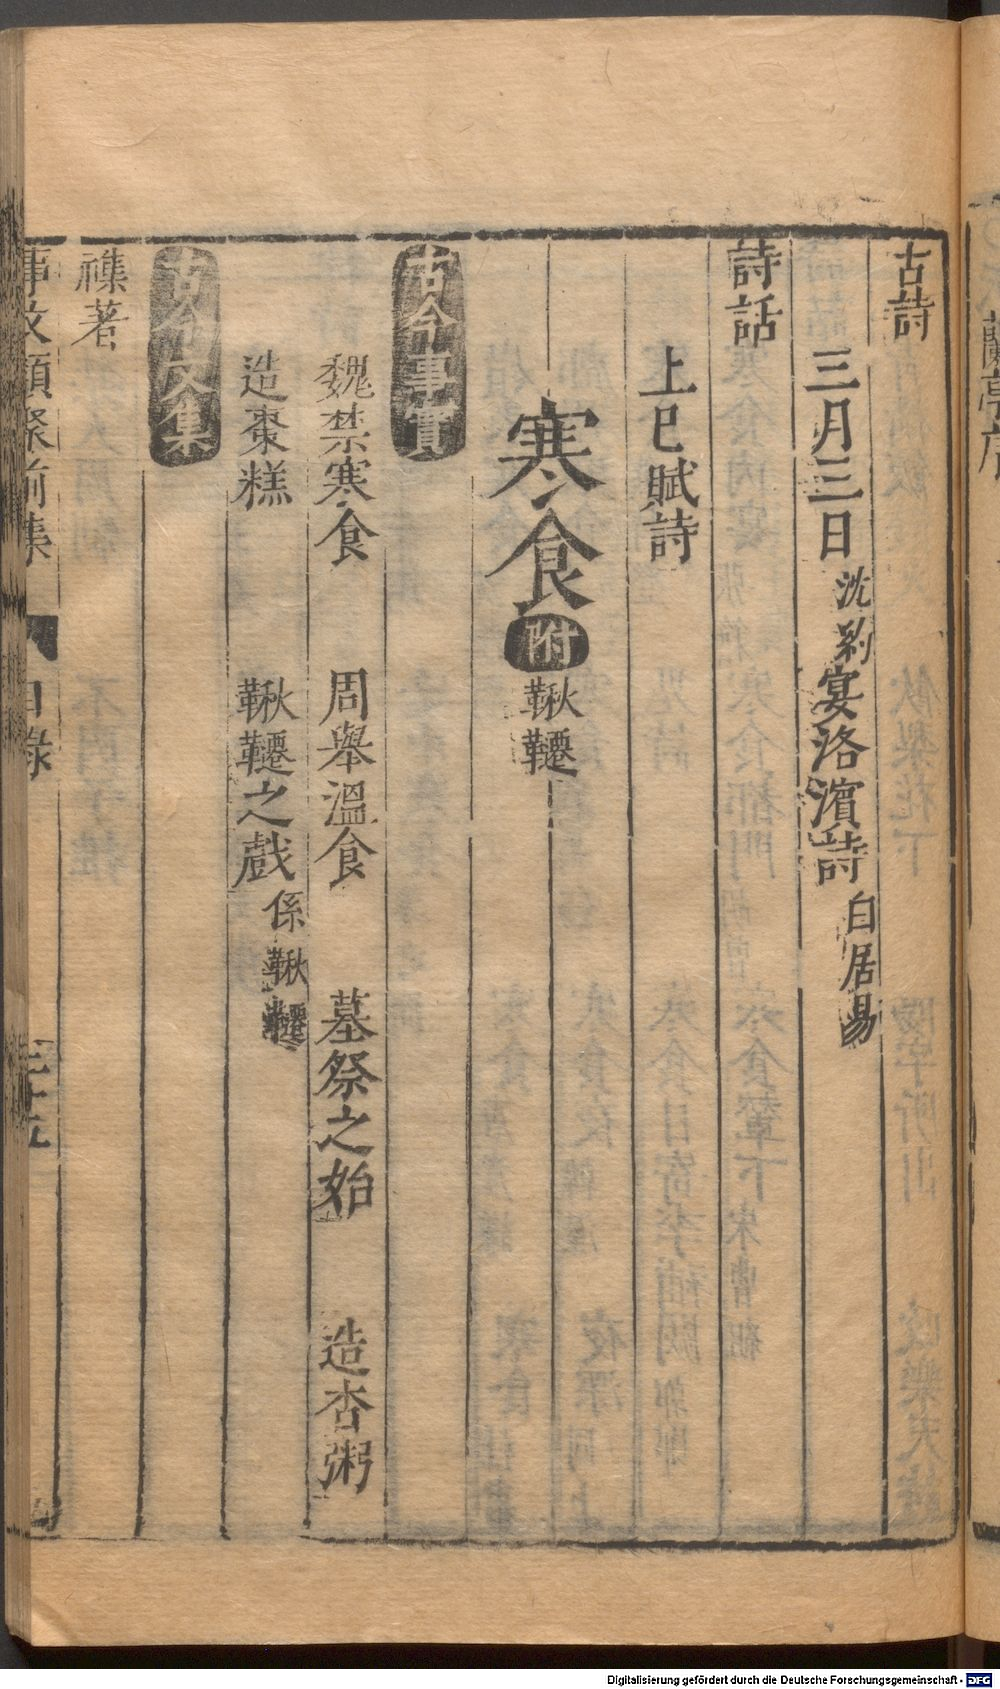 古詩
三月三日 沈約 宴洛濱詩 白居易
詩話
上巳賦詩
寒食 附 鞦韆
古今事實
魏禁寒食 周舉溫食 墓祭之始 造杏粥
造棗糕 鞦韆之戲 係鞦韆
古今文集
襍著
事文類聚前集 目錄
蘭亭
Digitalisierung gefördert durch die Deutsche Forschungsgemeinschaft - DFG